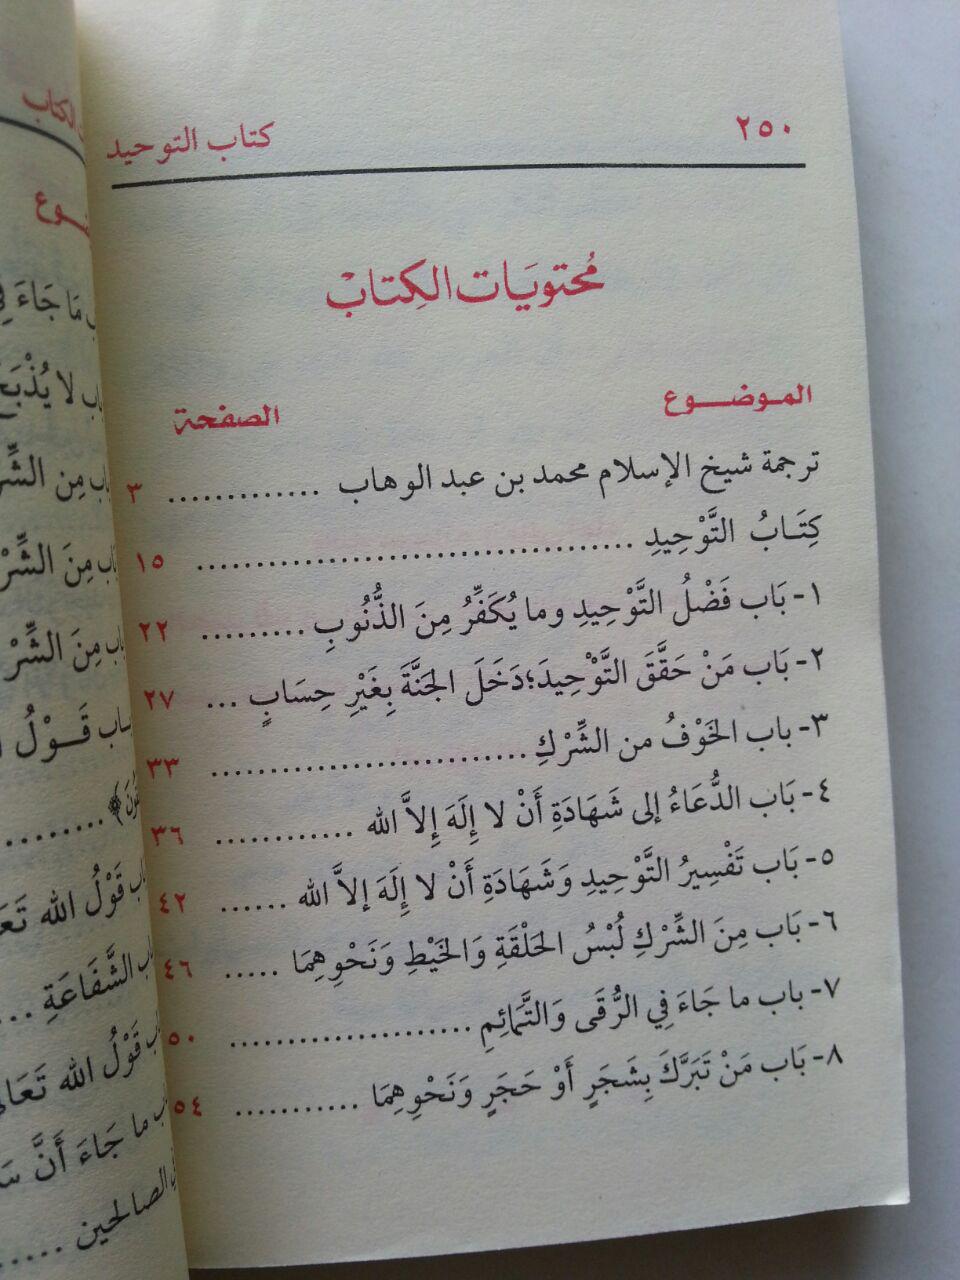 ٢٥٠ كتاب التوحيد
مُحتويَات الكِتابْ
الموضوع الصفحة
ترجمة شيخ الإسلام محمد بن عبد الوهاب ............. ٣
كِتَابُ التَّوْحِيدِ ..................................... ١٥
١- بَاب فَضْلُ التَّوْحِيدِ وما يُكَفِّرُ مِنَ الذُّنُوبِ ......... ٢٢
٢- بَاب مَنْ حَقَّقَ التَّوْحِيدَ؛دَخَلَ الجَنَّةَ بِغَيْرِ حِسَابٍ ... ٢٧
٣- باب الخَوْفُ من الشِّرْكِ ........................... ٣٣
٤- بَاب الدُّعَاءُ إلى شَهَادَةِ أَنْ لا إِلَهَ إِلاَّ الله ............ ٣٦
٥- بَاب تَفْسِيرُ التَّوْحِيدِ وَشَهَادَةِ أَنْ لا إِلَهَ إلاَّ الله ...... ٤٢
٦- بَاب مِنَ الشِّرْكِ لُبْسُ الحَلْقَةِ وَالخَيْطِ وَنَحْوِهِمَا ..... ٤٦
٧- باب ما جَاءَ فِي الرُّقَى وَالتَّمَائِمِ ..................... ٥٠
٨- بَاب مَنْ تَبَرَّكَ بِشَجَرٍ أَوْ حَجَرٍ وَنَحْوِهِمَا ........... ٥٤
مَا جَاءَ
لا يُذْبَحُ
مِن
مِنَ
مِنَ
قَوْلُ
قَوْلُ الله
الشَّفَاعَةِ ...
قَوْلُ الله
ما جَاءَ أَنَّ
الصالحين .....